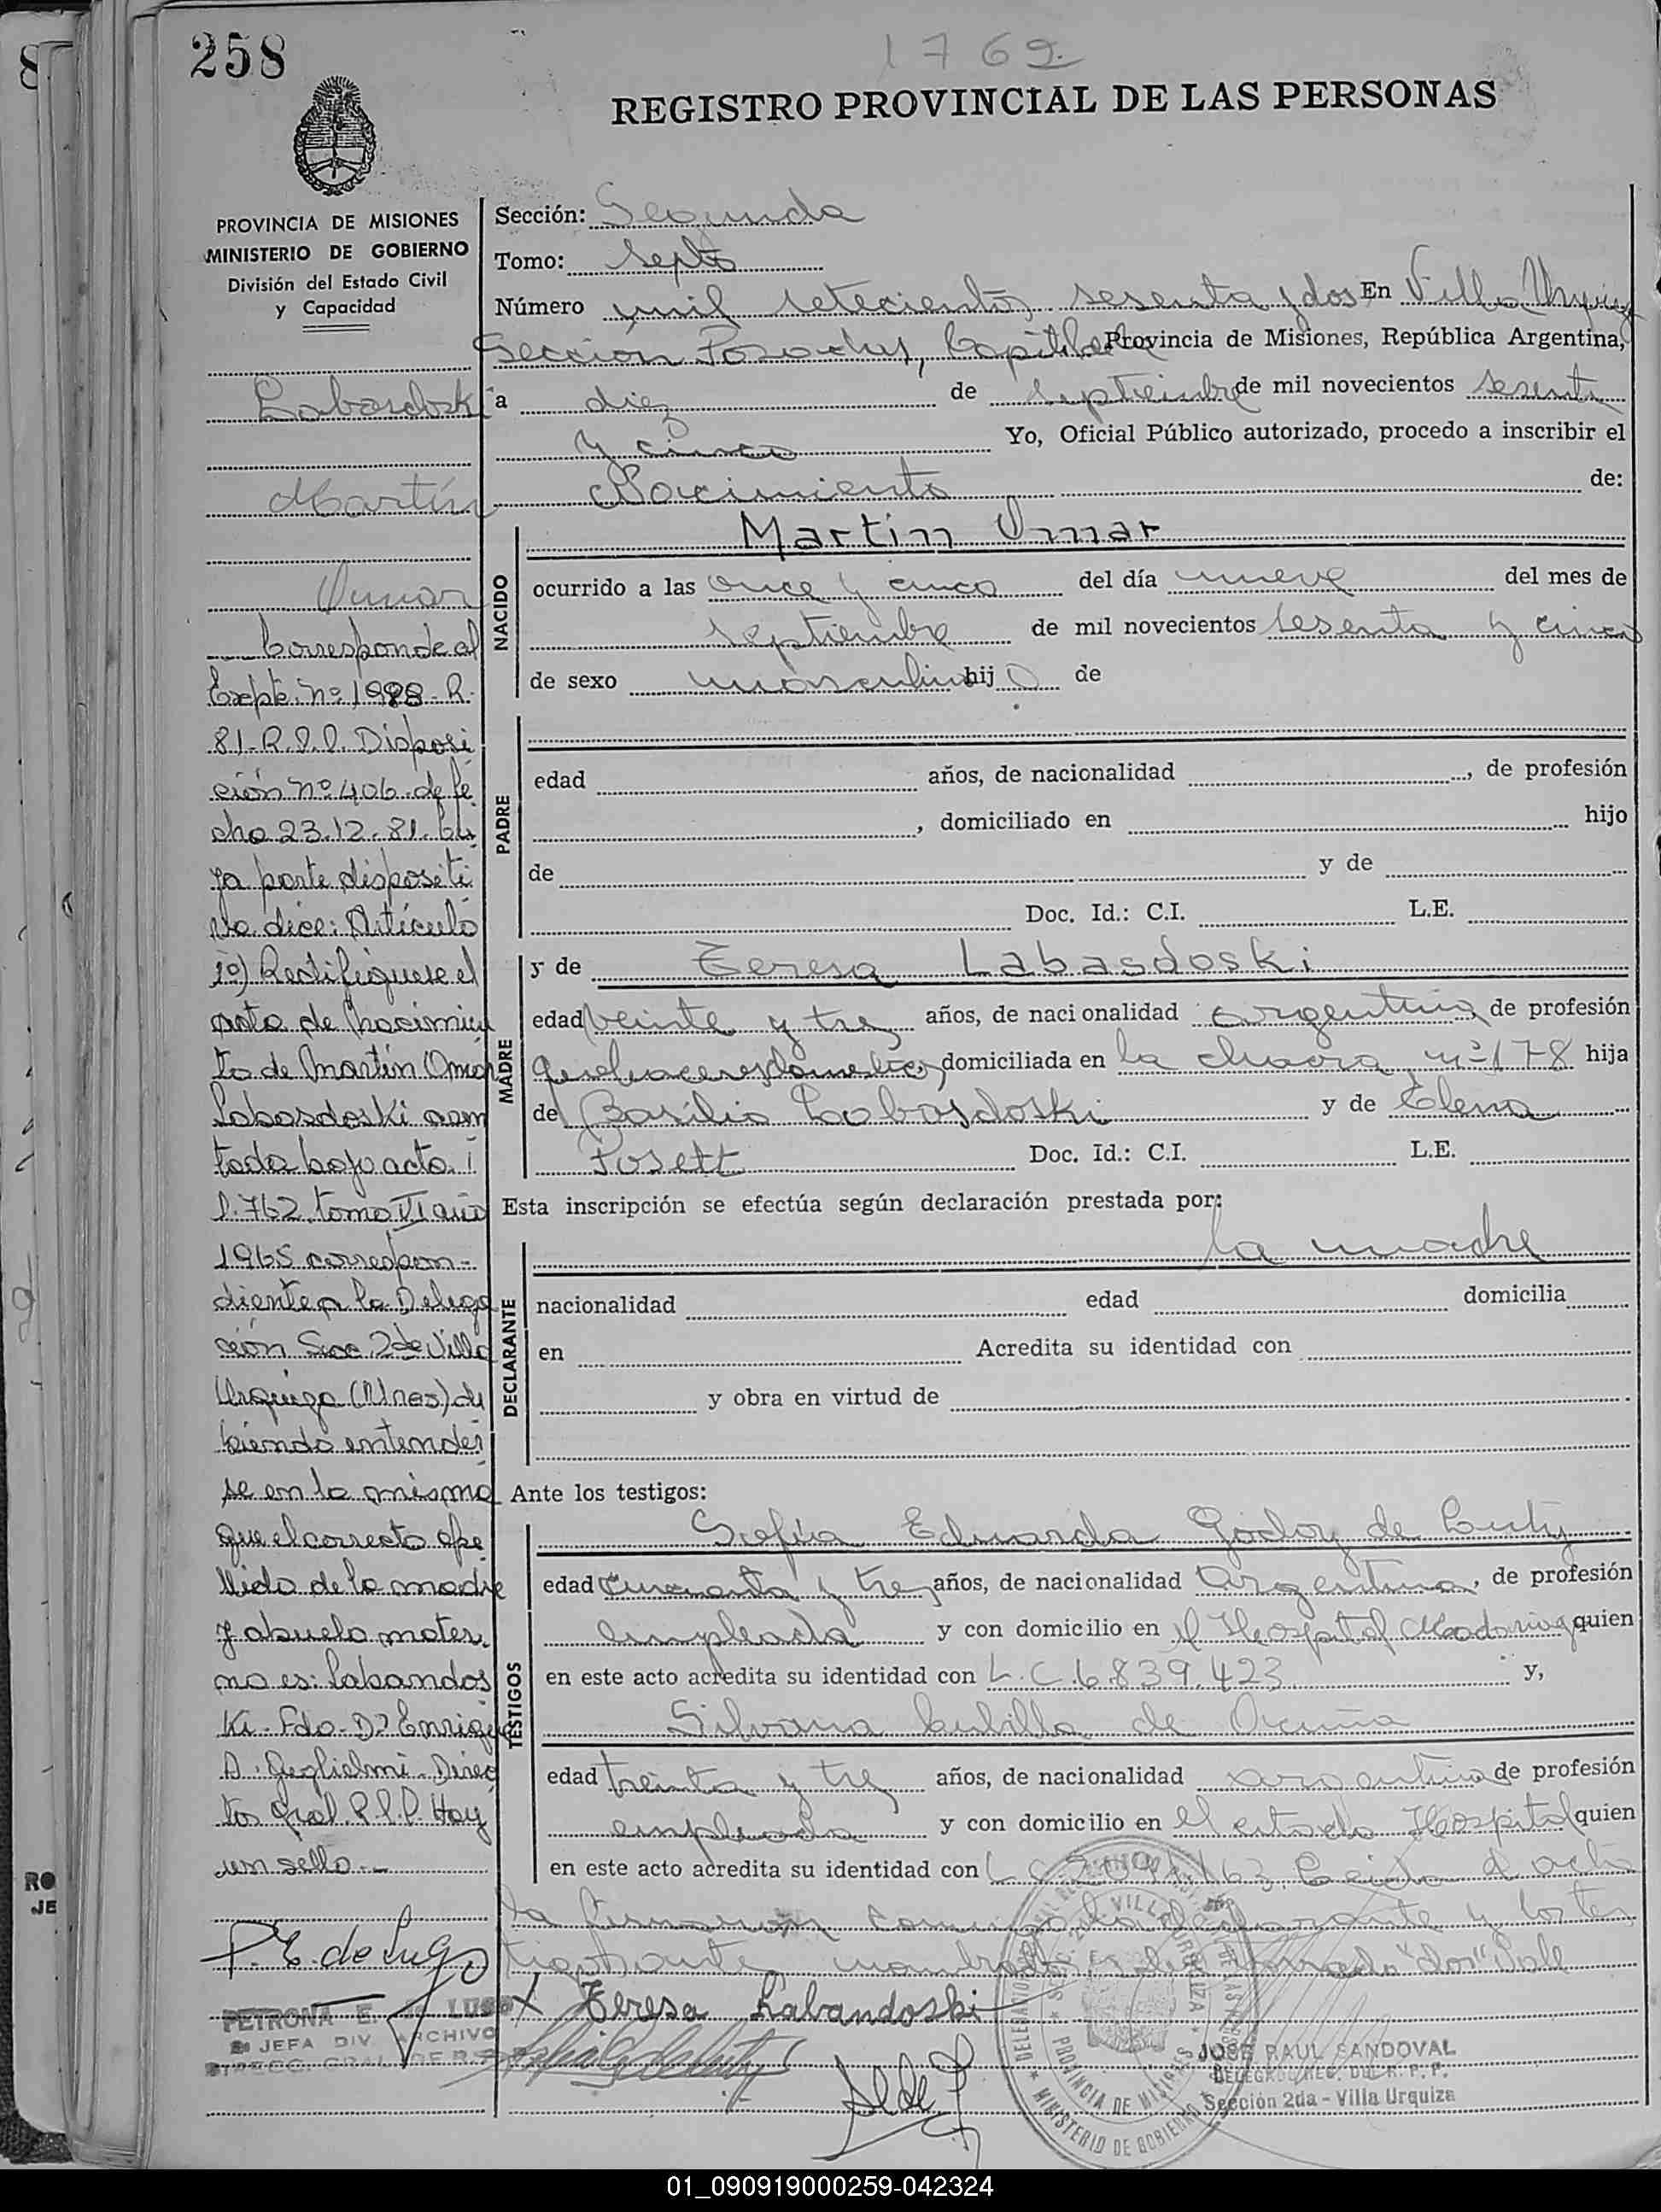 258
1762
REGISTRO PROVINCIAL DE LAS PERSONAS
PROVINCIA DE MISIONES
MINISTERIO DE GOBIERNO
División del Estado Civil
y Capacidad
Labasdoski
Martín
Omar
Corresponde al
Expte. nº 1988-R-
81-R.P.P. Disposi
ción nº 406 de fe
cha 23.12.81. Cu
ya parte dispositi
va dice: Artículo
1º) Rectifíquese el
acta de nacimien
to de Martín Omar
Labasdoski asen
tada bajo acta
1.762, tomo VI año
1965 correspon-
diente a la Delega
ción Secc 2da Villa
Urquiza (Mnes) de
biendo entender
se en la misma
que el correcto ape
llido de la madre
y abuelo mater
no es: Labandos
ki - Fdo - Dr Enrique
A. Guglielmi - Direc
tor Gral. R.P.P. Hay
un sello.-
P.E. de Lugo
PETRONA E. DE LUGO
JEFA DIV. ARCHIVO
DIRECC. GRAL. DE R.P.
Sección: Segunda
Tomo: Septo
Número mil setecientos sesenta y dos En Villa Urquiza
Sección Posadas, Capital de Provincia de Misiones, República Argentina,
a diez de septiembre de mil novecientos sesenta
y cinco Yo, Oficial Público autorizado, procedo a inscribir el
Nacimiento de:
NACIDO
Martin Omar
ocurrido a las once y cinco del día nueve del mes de
septiembre de mil novecientos sesenta y cinco
de sexo masculino hijo de
PADRE
edad años, de nacionalidad , de profesión
, domiciliado en hijo
de y de
Doc. Id.: C.I. L.E.
MADRE
y de Teresa Labasdoski
edad veinte y tres años, de nacionalidad argentina, de profesión
quehaceres domesticos, domiciliada en la chacra nº 178 hija
de Basilio Labasdoski y de Elena
Posett Doc. Id.: C.I. L.E.
Esta inscripción se efectúa según declaración prestada por:
DECLARANTE
la madre
nacionalidad edad domicilia
en Acredita su identidad con
y obra en virtud de
Ante los testigos:
TESTIGOS
Sofia Eduarda Godoy de
edad cincuenta y tres años, de nacionalidad argentina, de profesión
empleada y con domicilio en el Hospital Madariaga quien
en este acto acredita su identidad con L.C. 6.839.423 y,
Silvana Cubilla de Acuña
edad treinta y tres años, de nacionalidad argentina de profesión
empleada y con domicilio en el citado Hospital quien
en este acto acredita su identidad con L C Leida el acta
la firmaron conmigo la declarante y los tes
tigos "dos" Vale
Teresa Labandoski
JOSE RAUL SANDOVAL
DELEGADO REG. DEL R. P. P.
Sección 2da - Villa Urquiza
PROVINCIA DE MISIONES
MINISTERIO DE GOBIERNO
RO
JE
01_090919000259-042324